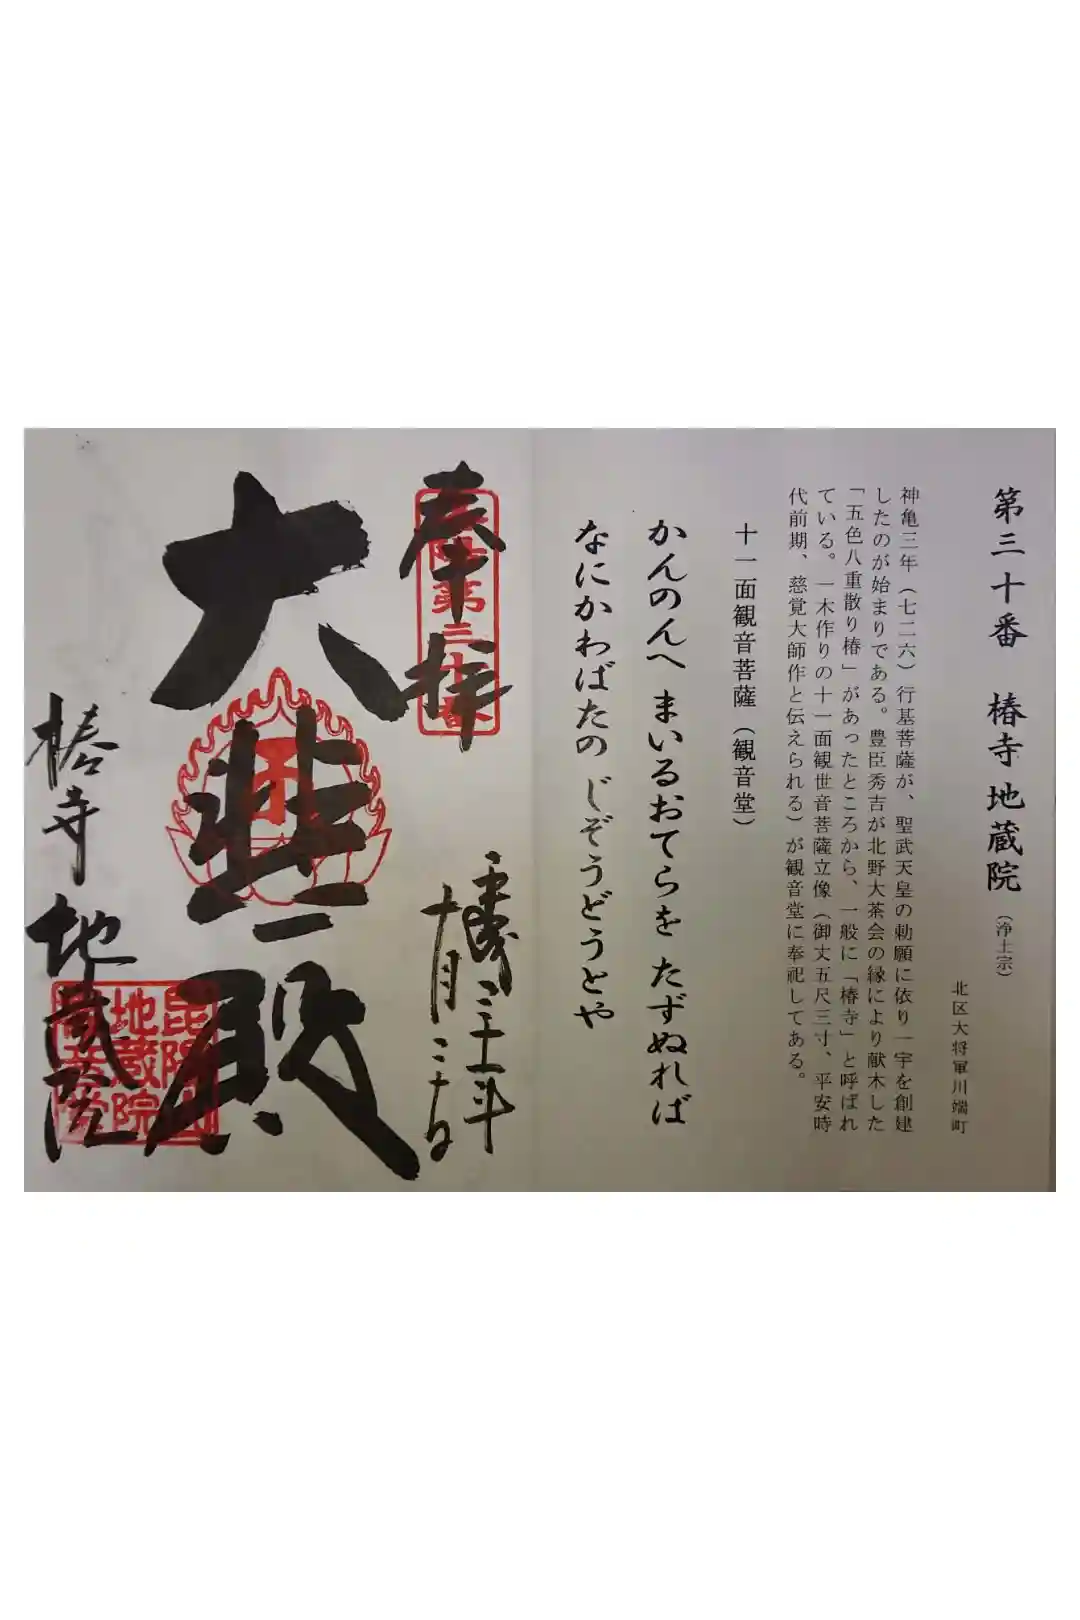 第三十番　椿寺地蔵院（浄土宗）
北区大将軍川端町
神亀三年（七二六）行基菩薩が、聖武天皇の勅願に依り一宇を創建
したのが始まりである。豊臣秀吉が北野大茶会の縁により献木した
「五色八重散り椿」があったところから、一般に「椿寺」と呼ばれ
ている。一木作りの十一面観世音菩薩立像（御丈五尺三寸、平安時
代前期、慈覚大師作と伝えられる）が観音堂に奉祀してある。
十一面観音菩薩（観音堂）
かんのんへ まいるおてらを たずぬれば
なにかわばたの じぞうどうとや
奉拝
洛陽第三十番
三十年
十月二十日
大悲殿
椿寺地蔵院
昆陽山
地蔵院